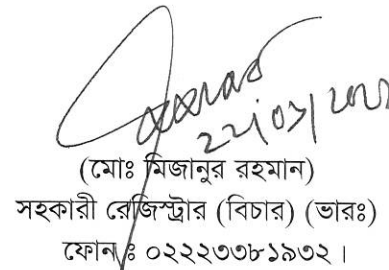 (মোঃ মিজানুর রহমান)
সহকারী রেজিস্ট্রার (বিচার) (ভারঃ)
ফোন ঃ ০২২২৩৩৮১৯৩২।